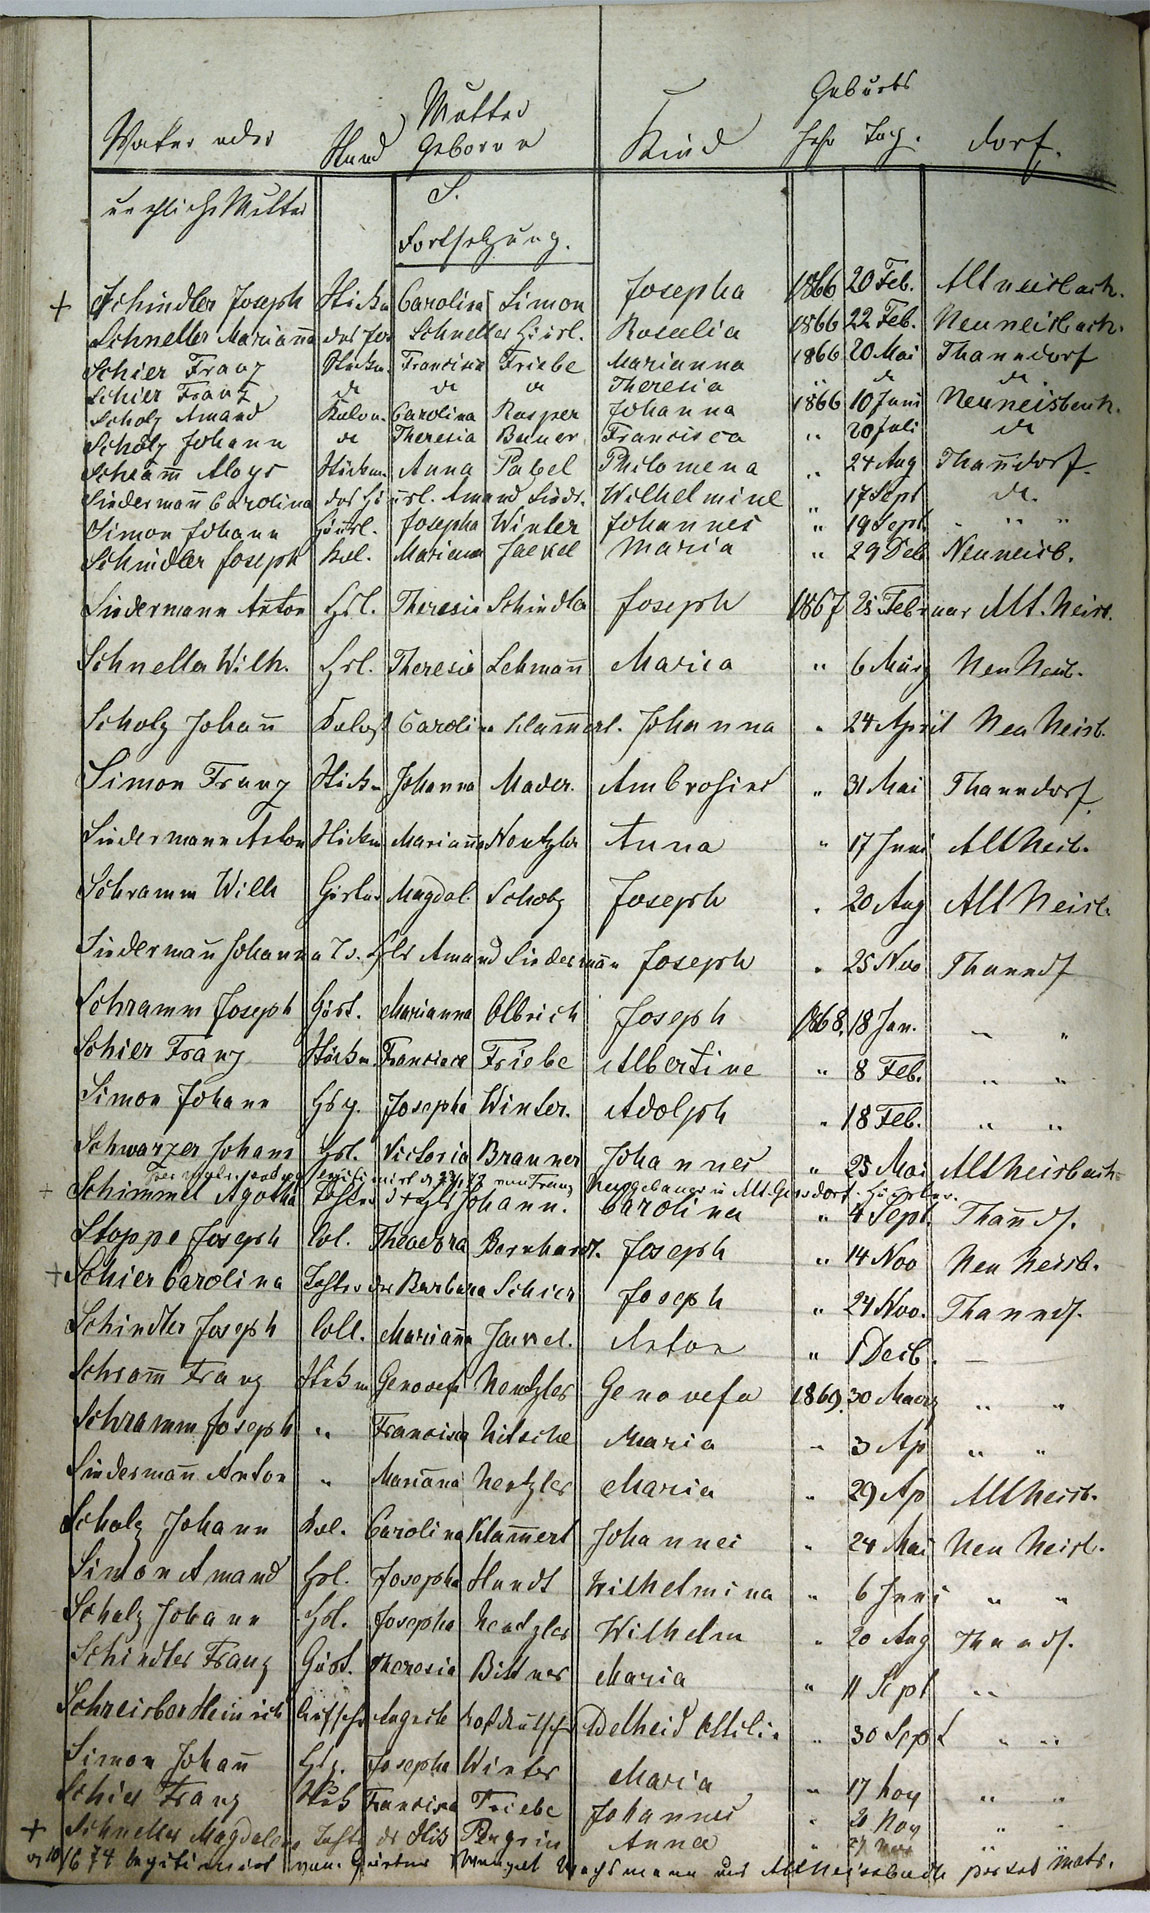 Geburts
Vater oder Stand Mutter Geborne Kind Jahr Tag. Dorf.
uneheliche Mutter S.
Fortsetzung.
+ Schindler Joseph Stückm Carolina Simon Josepha 1866 20 Feb. Altneisbach.
Schneller Marianna des Jos Schneller Häusl. Rosalia 1866 22 Feb. Neuneisbach.
Schier Franz Stückm. Francisca Friebe Marianna 1866 20 Mai Thanndorf
Schier Franz do do do Theresia " do do
Scholz Amand Kolon. Carolina Kasper Johanna 1866 10 Juni Neuneisbach.
Scholz Johann do Theresia Francisca " 20 Juli do
Schramm Aloys Stückm. Anna Pabel Philomena " 24 Aug Thanndorf.
Siedermann Carolina des Häusl. Amand Siedr. Wilhelmine " 17 Sept do.
Simon Johann Häusl. Josepha Winter Johannes " 19 Sept. " " "
Schindler Joseph Kol. Mariana Jaekel Maria " 29 Deb Neuneisb.
Siedermann Anton Hsl. Theresia Schindler Joseph 1867 25 Februar Alt. Neisb.
Schneller Wilh. Hsl. Theresia Lehmann Maria " 6 März Neu Neisb.
Scholz Johann Carolina Klammert. Johanna " 24 April Neu Neisb.
Simon Franz Stückm Johanna Mader. Ambrosius " 31 Mai Thanndorf
Siedermann Anton Stückm Marianna Nentzler Anna " 17 Juni Alt Neisb.
Schramm Wilh Magdal. Scholz Joseph " 20 Aug Alt Neisb.
Siedermann Johanna T. d. Hsls Amand Siedermann Joseph " 25 Nov Thanndf
Schramm Joseph Gärt. Marianna Olbrich Joseph 1868. 18 Jan. " "
Schier Franz Stückm Francisca Friebe Albertine " 8 Feb. " "
Simon Johann Hsg. Josepha Winter. Adolph " 18 Feb. " "
Schwarzer Johann Hsl. Victoria Brauner Johannes " 25 Mai Altneisbach
legitimirt Franz in Alt Gersdorf. Häusler.
+ Schimmel Agatha Tochter d + Johann. Carolina " 4 Sept. Thanndf.
Stoppe Joseph Col. Theodora Bernhardt. Joseph " 14 Nov Neu Neisb.
+ Schier Carolina Tochter der Barbara Schier Joseph " 24 Nov. Thanndf.
Schindler Joseph Coll. Marianna Jaekel. Anton " 1 Decb.
Schramm Franz Stückm Genovefa Nentzler Genovefa 1869. 30 Maerz " "
Schramm Joseph " Francisca Nitsche Maria " 3 Ap " "
Siedermann Anton " Marianna Nentzler Maria " 29 Ap Alt Neisb.
Scholz Johann Kol. Carolina Klammert Johannes " 24 Mai Neu Neisb.
Simon Amand Hsl. Josepha Hundt Wilhelmina " 6 Juni " "
Scholz Johann Hsl. Josepha Nentzler Wilhelm " 20 Aug Thandf.
Schindler Franz Gärt. Theresia Bittner Maria " 11 Sept " "
Schreiber Heinrich Auguste Adelheid Ottilie " 30 Sept " "
Simon Johann Hsg. Josepha Winter Maria " 17 Nov " "
Schier Franz Stück Francisca Friebe Johannes " 20 Nov "
+ Schneller Magdalena Tochter des Stück Peregrin Anna " 27 Nov "
10/6 74 legitimirt vom Gärtner Wenzel Wachsmann aus Altneissbach per sub matr.